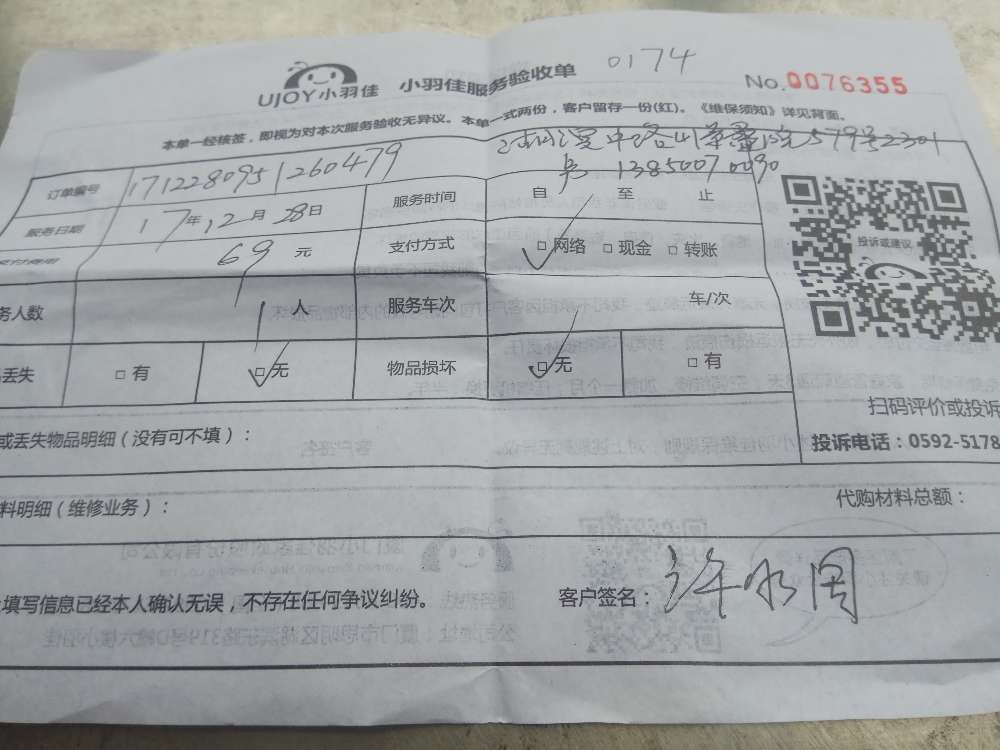 UJOY小羽佳 小羽佳服务验收单 0174
No.0076355
本单一经核签，即视为对本次服务验收无异议。本单一式两份，客户留存一份(红)。《维保须知》详见背面。
579号2301
13850070090
订单编号 1712280951260479
服务日期 17年12月28日 服务时间 自 至 止
支付费用 69元 支付方式 □网络 □现金 □转账
务人数 1人 服务车次 车/次
丢失 □有 □无 物品损坏 □无 □有
投诉或建议
扫码评价或投诉
投诉电话：0592-5178
或丢失物品明细（没有可不填）：
料明细（维修业务）： 代购材料总额：
填写信息已经本人确认无误，不存在任何争议纠纷。 客户签名：许水国